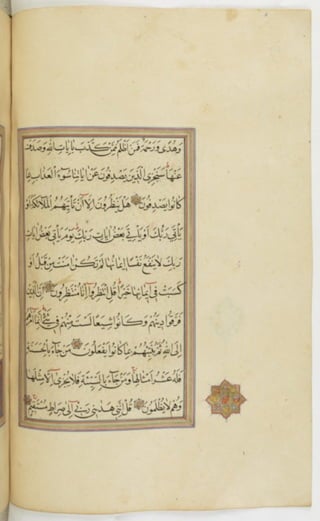 وَهُدًى وَرَحْمَةٌ فَمَنْ أَظْلَمُ مِمَّنْ كَذَّبَ بِآيَاتِ اللَّهِ وَصَدَفَ
عَنْهَا سَنَجْزِي الَّذِينَ يَصْدِفُونَ عَنْ آيَاتِنَا سُوءَ الْعَذَابِ بِمَا
كَانُوا يَصْدِفُونَ هَلْ يَنْظُرُونَ إِلَّا أَنْ تَأْتِيَهُمُ الْمَلَائِكَةُ أَوْ
يَأْتِيَ رَبُّكَ أَوْ يَأْتِيَ بَعْضُ آيَاتِ رَبِّكَ يَوْمَ يَأْتِي بَعْضُ آيَاتِ
رَبِّكَ لَا يَنْفَعُ نَفْسًا إِيمَانُهَا لَمْ تَكُنْ آمَنَتْ مِنْ قَبْلُ أَوْ
كَسَبَتْ فِي إِيمَانِهَا خَيْرًا قُلِ انْتَظِرُوا إِنَّا مُنْتَظِرُونَ إِنَّ الَّذِينَ
فَرَّقُوا دِينَهُمْ وَكَانُوا شِيَعًا لَسْتَ مِنْهُمْ فِي شَيْءٍ إِنَّمَا أَمْرُهُمْ
إِلَى اللَّهِ ثُمَّ يُنَبِّئُهُمْ بِمَا كَانُوا يَفْعَلُونَ مَنْ جَاءَ بِالْحَسَنَةِ
فَلَهُ عَشْرُ أَمْثَالِهَا وَمَنْ جَاءَ بِالسَّيِّئَةِ فَلَا يُجْزَى إِلَّا مِثْلَهَا
وَهُمْ لَا يُظْلَمُونَ قُلْ إِنَّنِي هَدَانِي رَبِّي إِلَى صِرَاطٍ مُسْتَقِيمٍ